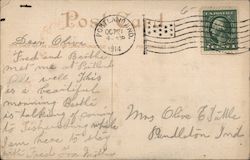 Post Card
PORTLAND, IND.
OCT 21
4 - P
1914
Dear Olive
Fred and Bertha
met me at Portland
All well. This
is a beautiful
morning Bertha
is talking of coming
to
here to
with Fred
Mrs Olive Tuttle
Pendleton Ind